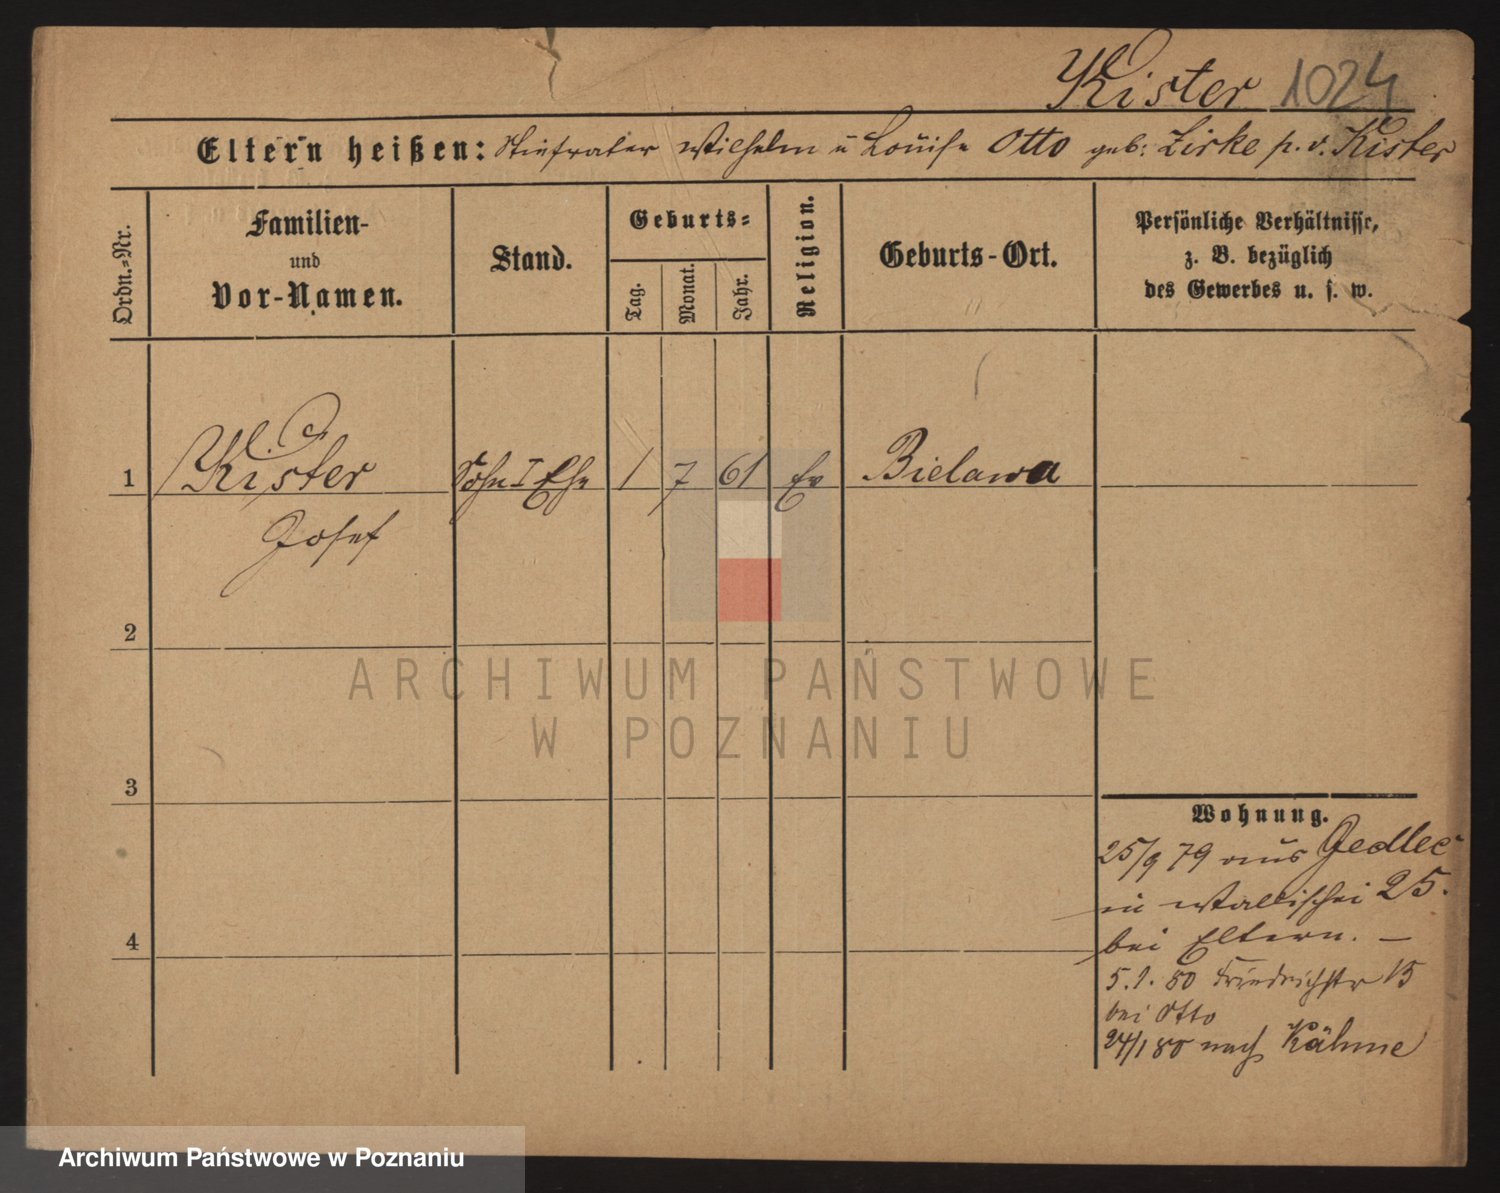 Kister 1024
Eltern heißen: Stiefvater Wilhelm u Louise Otto geb: Lirke p. v. Kister
Ordn.=Nr.
Familien-
und
Vor-Namen.
Stand.
Geburts=
Tag.
Monat.
Jahr.
Religion.
Geburts-Ort.
Persönliche Verhältnisse,
z. B. bezüglich
des Gewerbes u. s. w.
1 Kister Sohn I Ehe 1 7 61 Ev Bielawa
Josef
2
3
4
Wohnung.
25/9 79 aus Jedlec
in Wallischei 25.
bei Eltern. —
5.1.80 Friedrichstr 15
bei Otto
24/1 80 nach Kähme
ARCHIWUM PAŃSTWOWE
W POZNANIU
Archiwum Państwowe w Poznaniu